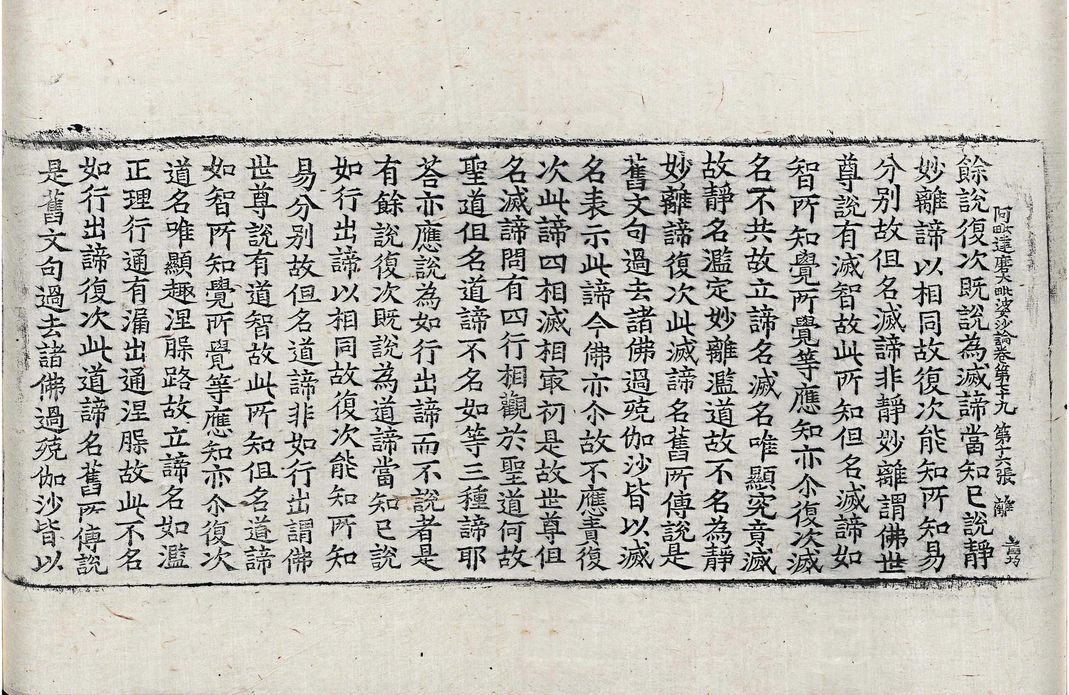 阿毗達磨大毗婆沙論卷第七十九 第十六張 離
餘說復次既說為滅諦當知已說靜
妙離諦以相同故復次能知所知易
分別故但名滅諦非靜妙離謂佛世
尊說有滅智故此所知但名滅諦如
智所知覺所覺等應知亦尒復次滅
名不共故立諦名滅名唯顯究竟滅
故靜名濫定妙離濫道故不名為靜
妙離諦復次此滅諦名舊所傳說是
舊文句過去諸佛過殑伽沙皆以滅
名表示此諦今佛亦尒故不應責復
次此諦四相滅相㝡初是故世尊但
名滅諦問有四行相觀於聖道何故
聖道但名道諦不名如等三種諦耶
荅亦應說為如行出諦而不說者是
有餘說復次既說為道諦當知已說
如行出諦以相同故復次能知所知
易分別故但名道諦非如行出謂佛
世尊說有道智故此所知但名道諦
如智所知覺所覺等應知亦尒復次
道名唯顯趣涅槃路故立諦名如濫
正理行通有漏出通涅槃故此不名
如行出諦復次此道諦名舊所傳說
是舊文句過去諸佛過殑伽沙皆以